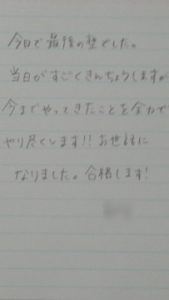 今日で最後の塾でした。
当日がすごくきんちょうしますが
今までやってきたことを全力で
やり尽くします!!お世話に
なりました。合格します!